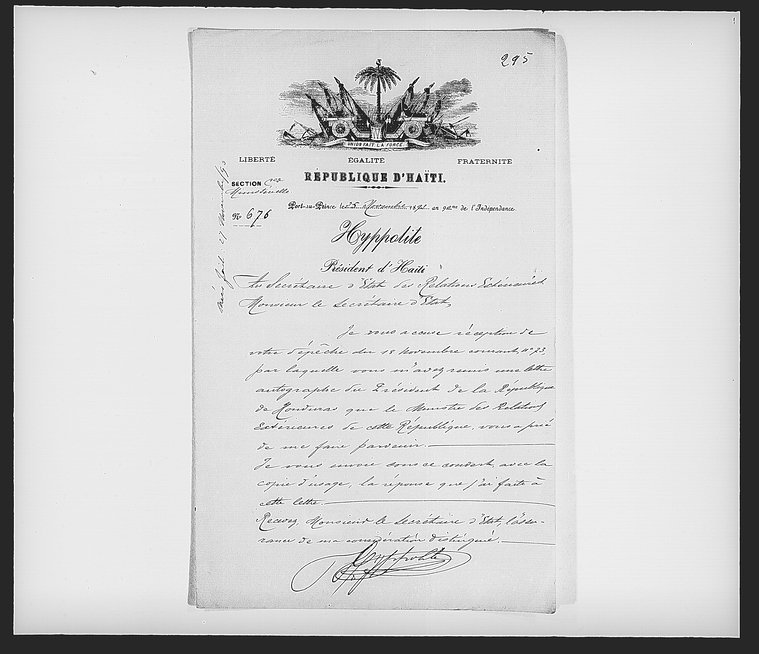 295
UNION FAIT LA FORCE
LIBERTÉ ÉGALITÉ FRATERNITÉ
RÉPUBLIQUE D'HAÏTI.
SECTION
Nº 676
Port-au-Prince le 25 Novembre 189 en 90me de l'Indépendance
Hyppolite
Président d'Haïti
Au Secrétaire d'Etat des Relations Extérieures
Monsieur le Secrétaire d'Etat,
Je vous accuse réception de
votre dépêche du 18 Novembre courant, nº 73,
par laquelle vous m'avez remis une lettre
autographe du Président de la République
de Honduras que le Ministre des Relations
Extérieures de cette République, vous a prié
de me faire parvenir.
Je vous envoie sous ce couvert, avec la
copie d'usage, la réponse que j'ai faite à
cette lettre.
Recevez, Monsieur le Secrétaire d'Etat, l'assu-
rance de ma considération distinguée.
Hyppolite